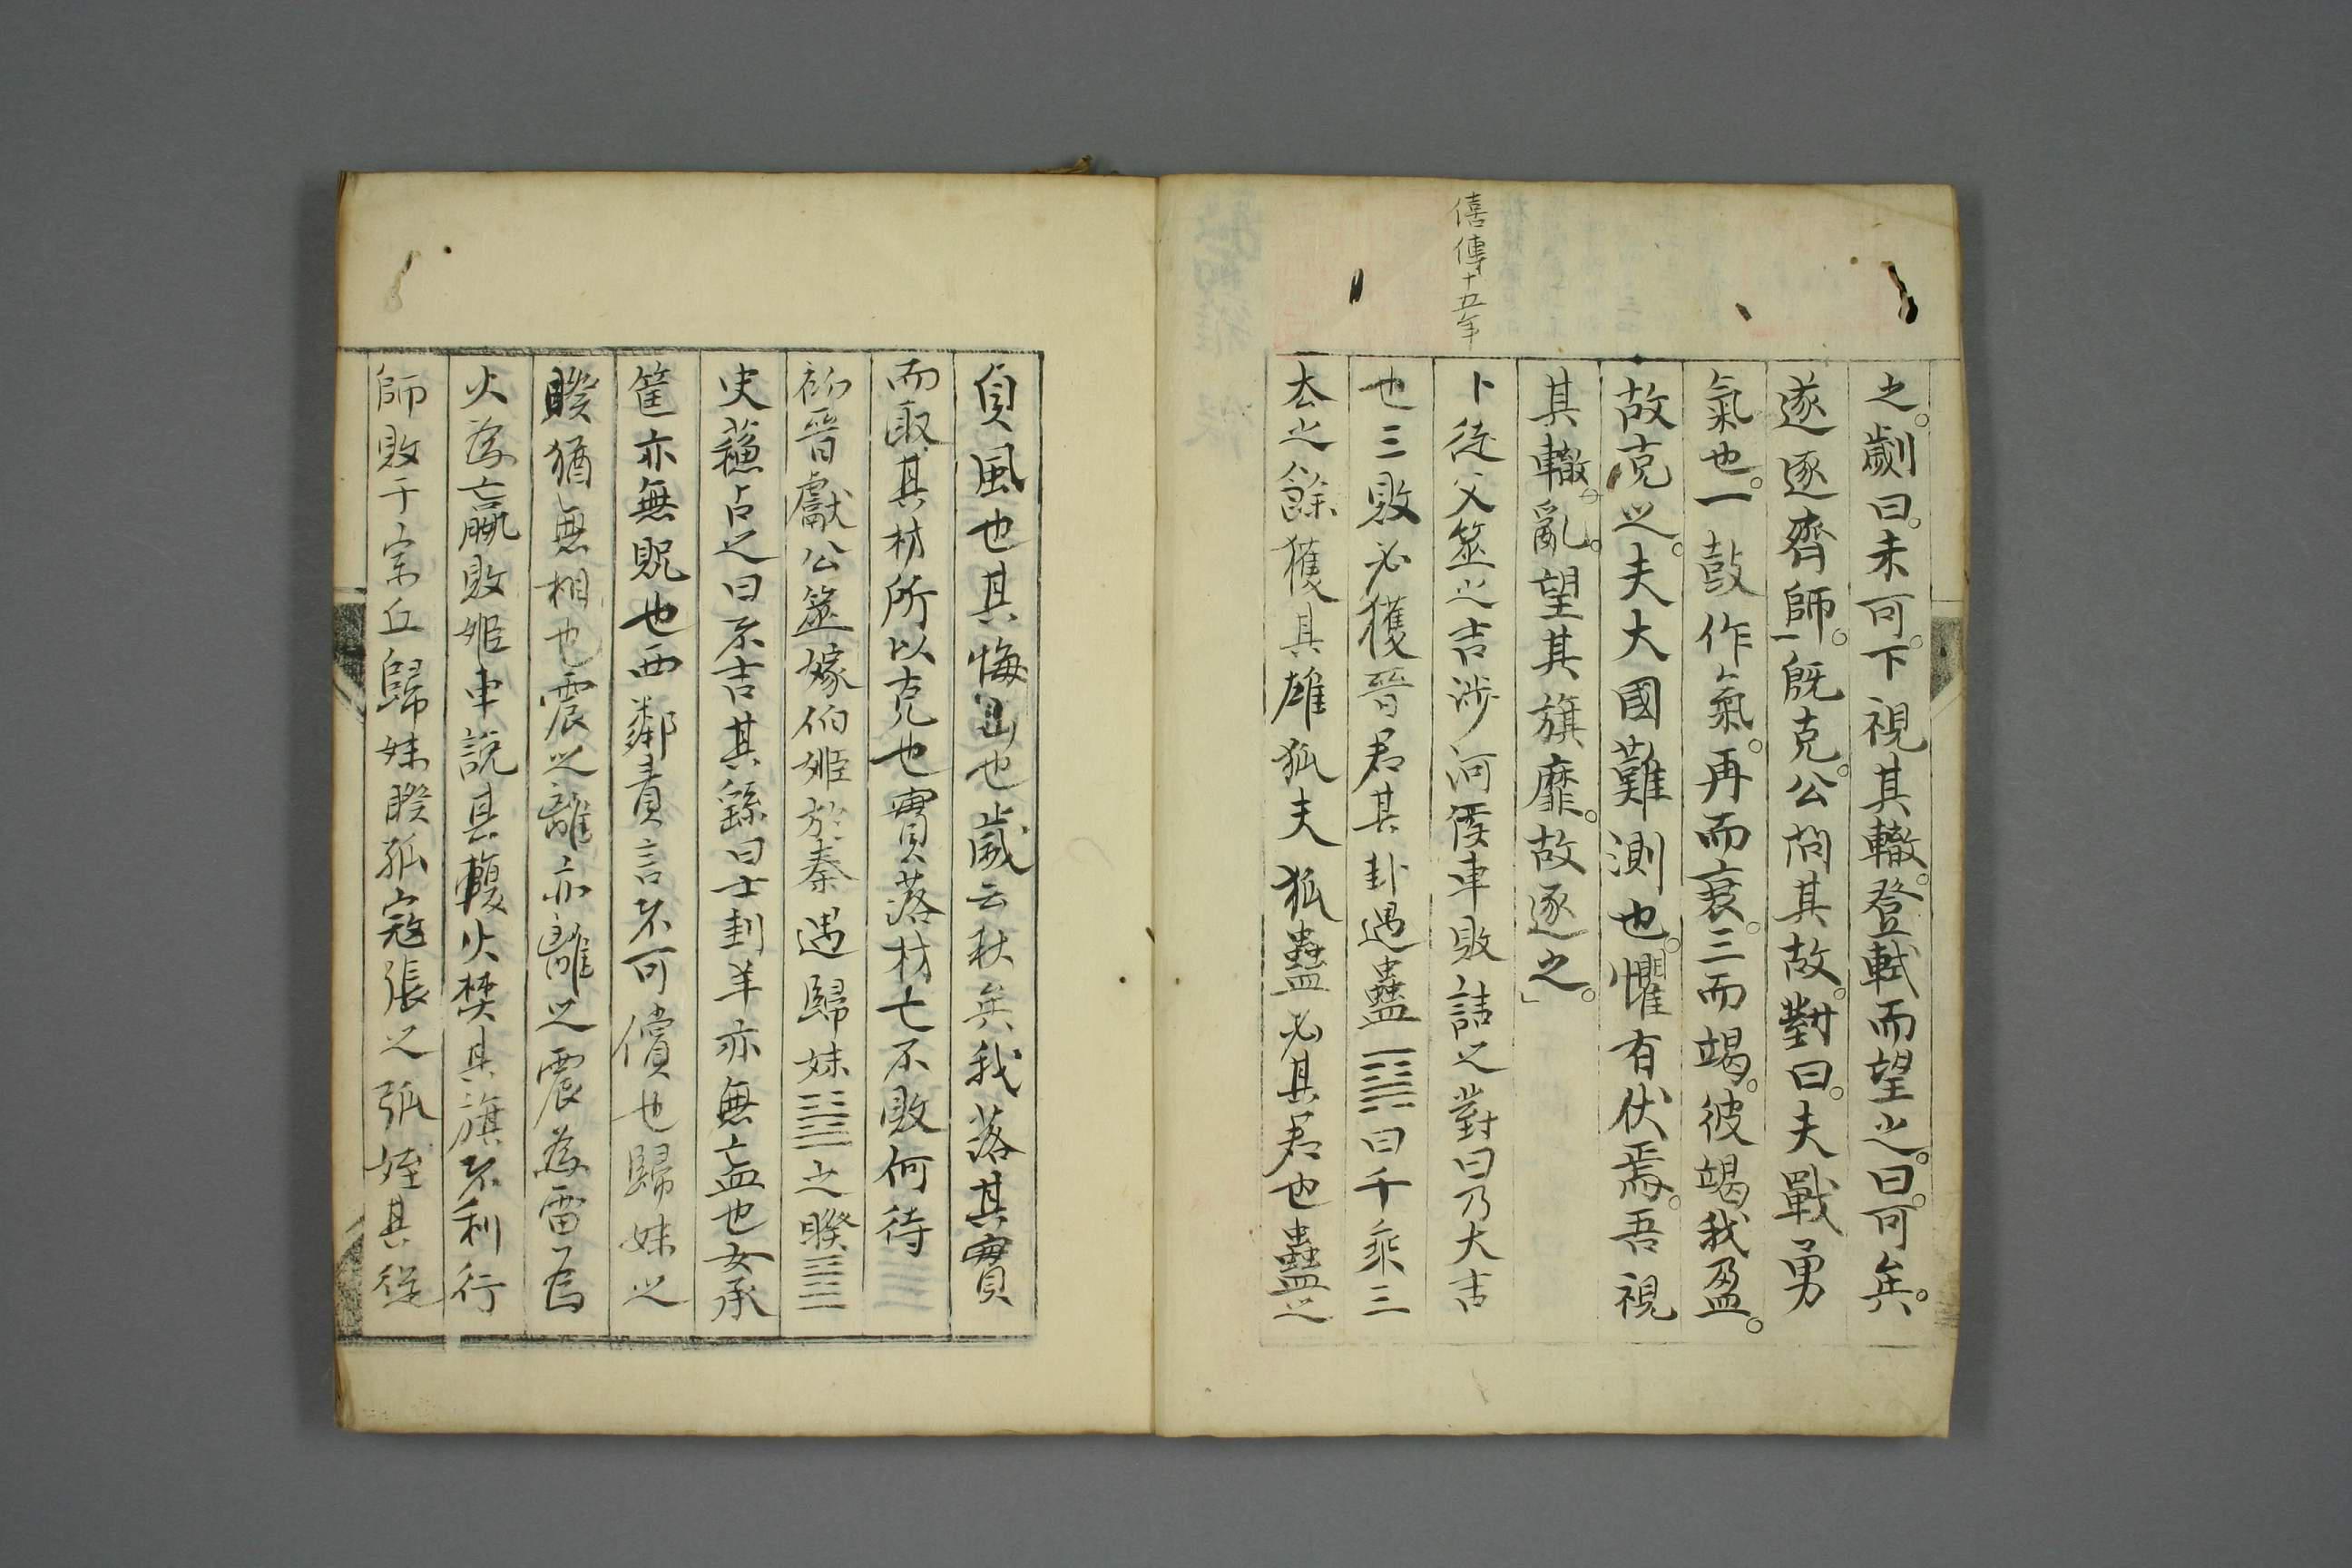 之。劌曰。未可。下視其轍。登軾而望之。曰。可矣。
遂逐齊師。既克。公問其故。對曰。夫戰勇
氣也。一鼓作氣。再而衰。三而竭。彼竭我盈。
故克之。夫大國難測也。懼有伏焉。吾視
其轍。亂。望其旗靡。故逐之。」
僖傳十五年
卜徒父筮之吉涉河侯車敗詰之對曰乃大吉
也三敗必獲晉君其卦遇蠱曰千乘三
去之餘獲其雄狐夫狐蠱必其君也蠱之
貞風也其悔山也歲云秋矣我落其實
而取其材所以克也實落材亡不敗何待
初晉獻公筮嫁伯姬於秦遇歸妹之睽
史蘇占之曰不吉其繇曰士刲羊亦無衁也女承
筐亦無貺也西鄰責言不可償也歸妹之
睽猶無相也震之離亦離之震為雷為
火為嬴敗姬車說其輹火焚其旗不利行
師敗于宗丘歸妹睽孤寇張之弧姪其從